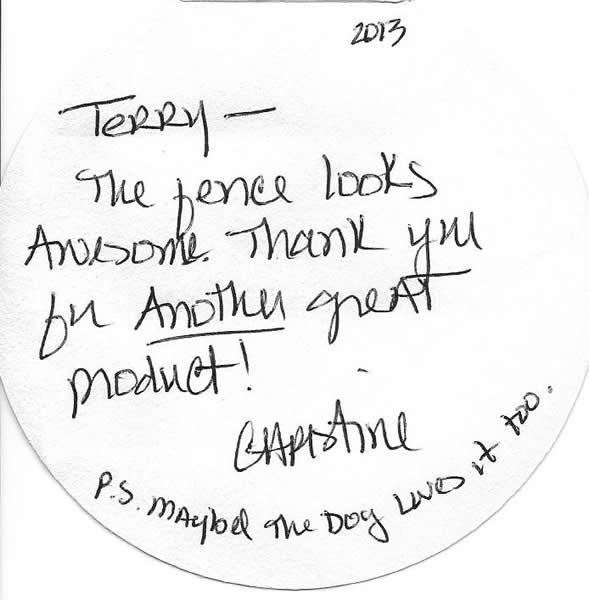 2013
Terry —
The fence looks
Awesome. Thank you
for Another great
product!
Christine
P.S. Maybel the Dog Loves it too.